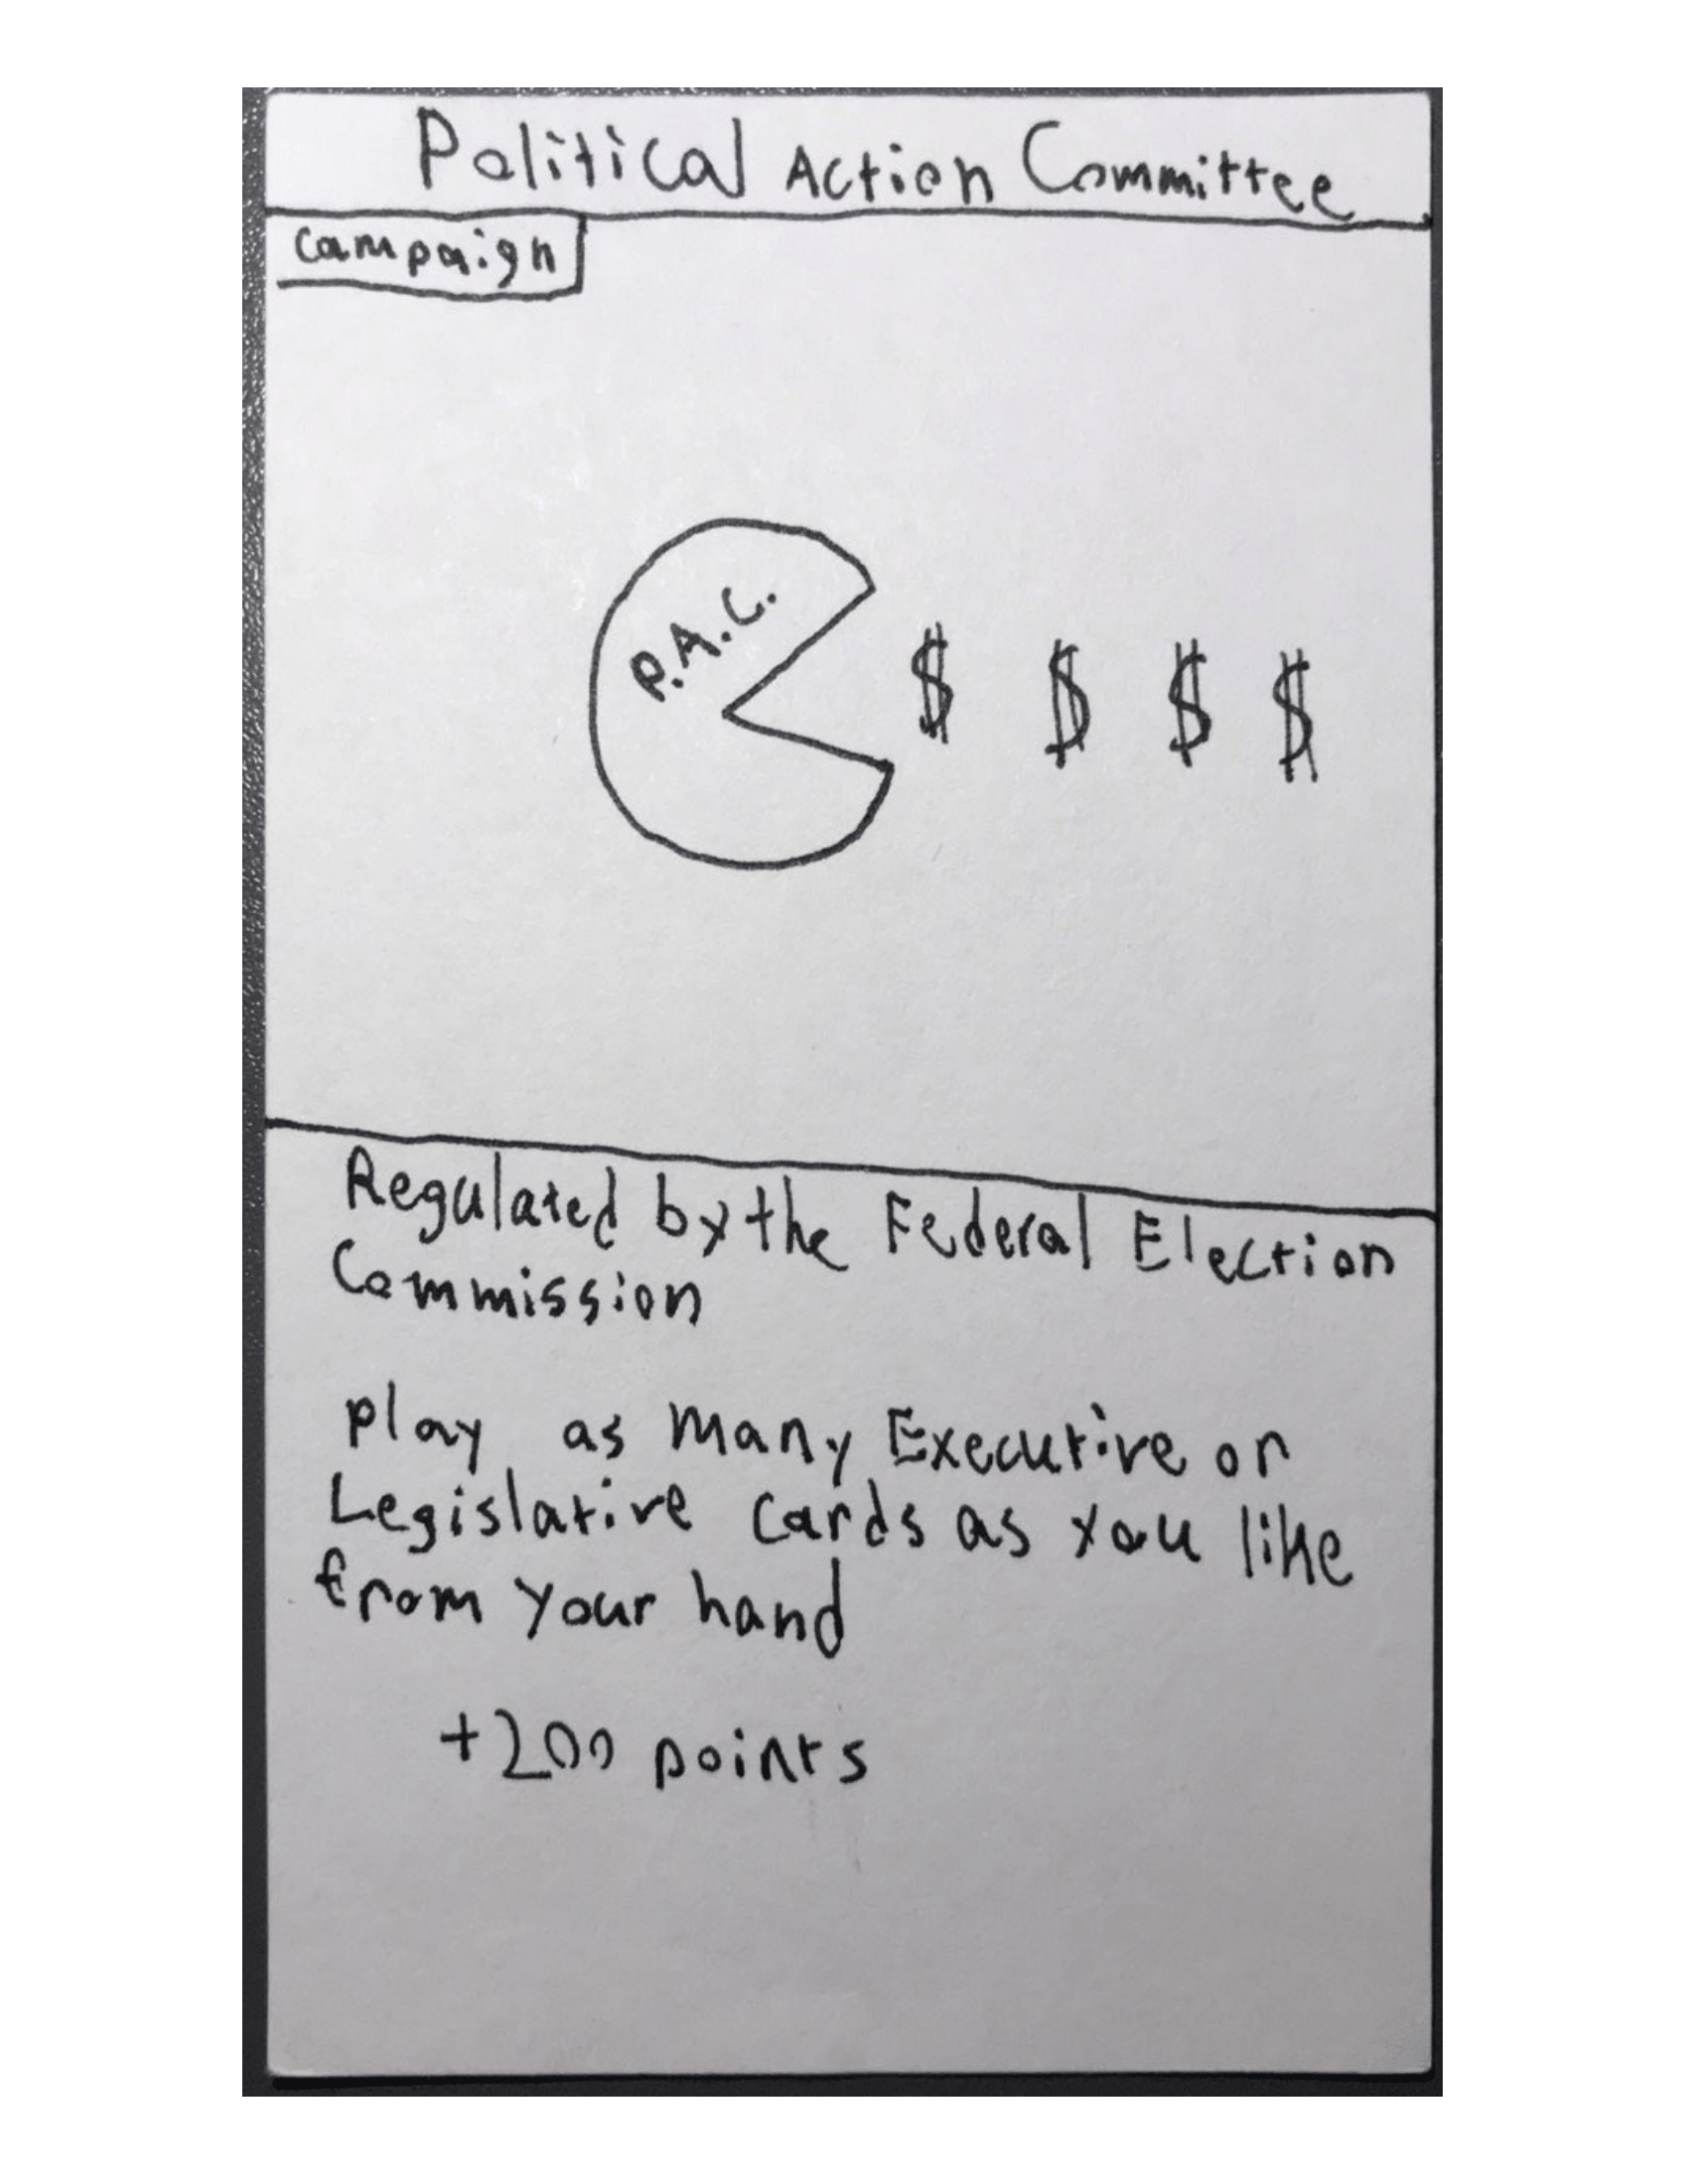 Political Action Committee
campaign
P.A.C.
$ $ $ $
Regulated by the Federal Election
Commission
Play as many Executive or
Legislative cards as you like
from your hand
+200 points